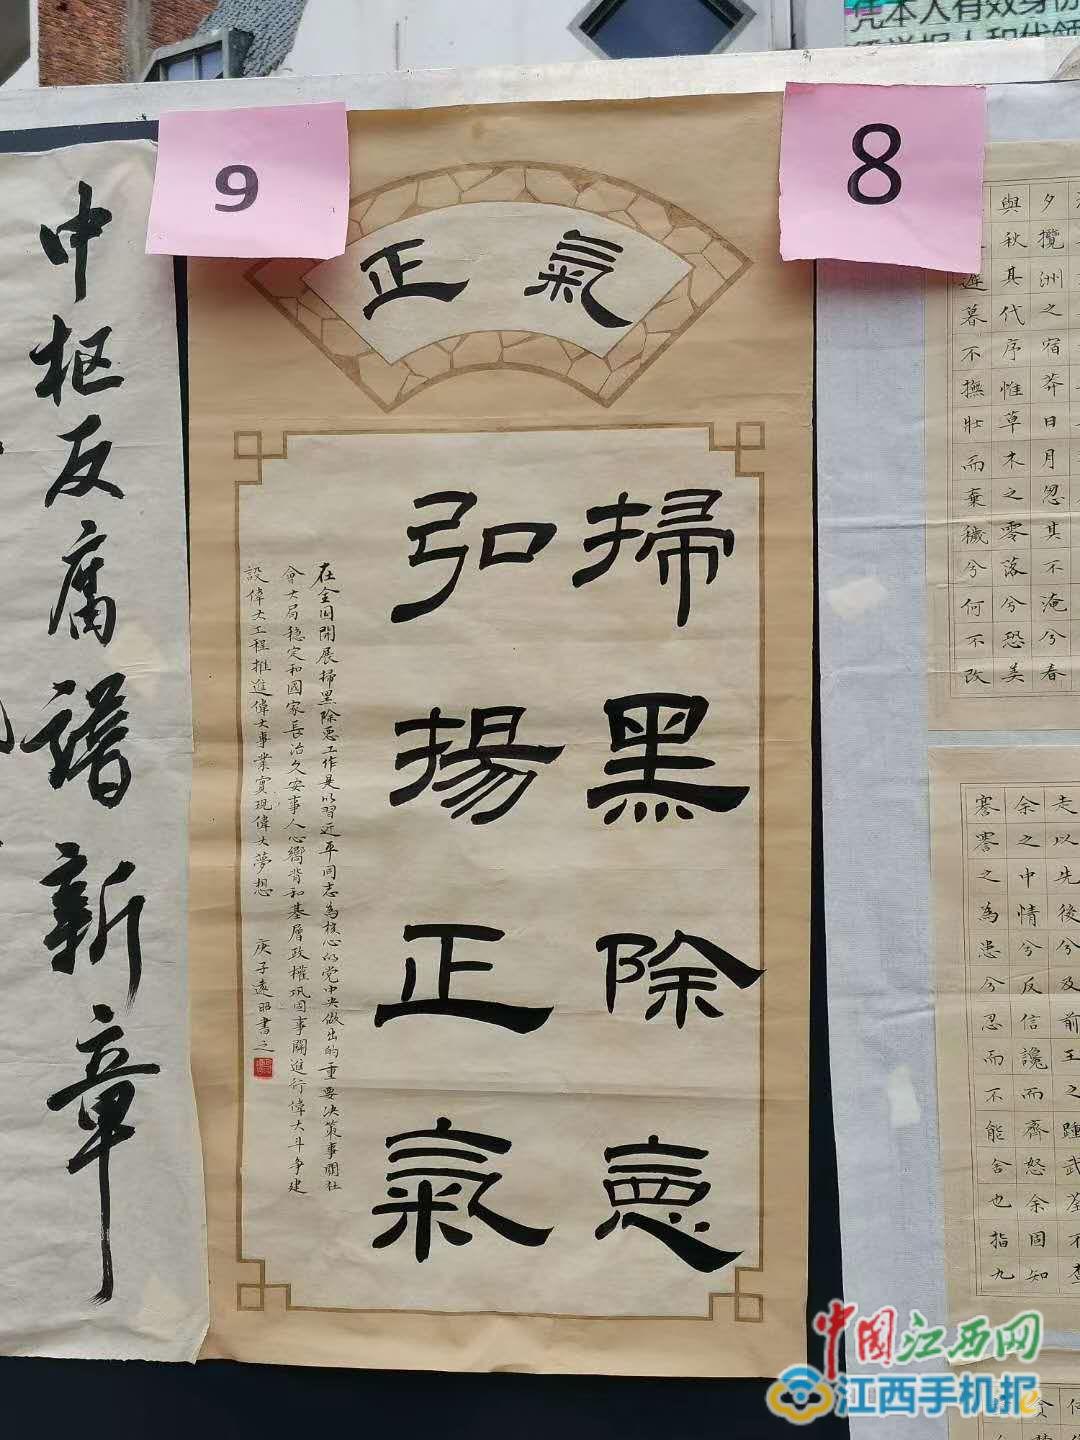 凭本人有效身份
9
8
正氣
掃黑除惡
弘揚正氣
在全国開展掃黑除惡工作是以習近平同志為核心的党中央做出的重要决策事關社
會大局穩定和國家長治久安事人心嚮背和基層政權巩固事關進行偉大斗争建
設偉大工程推進偉大事業實現偉大夢想
庚子遠昭書之
中枢反腐譜新章
夕攬洲之宿莽日月忽其不淹兮春
與秋其代序惟草木之零落兮恐美
遲暮不撫壯而棄穢兮何不改
走以先後兮及前王之踵武荃不查
余之中情兮反信讒而齊怒余固知
謇謇之為患兮忍而不能舍也指九
中國江西网
江西手机报